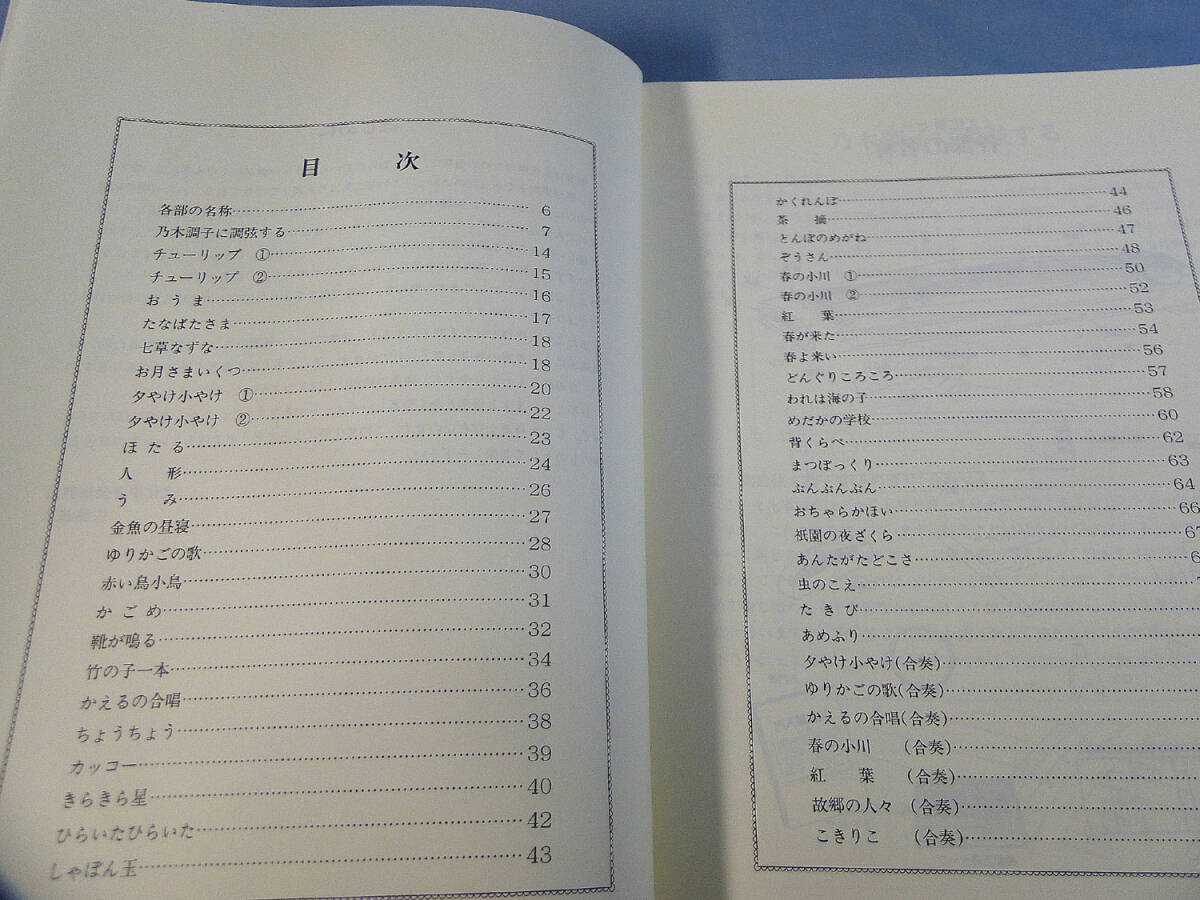 目次
各部の名称 6
乃木調子に調弦する 7
チューリップ ① 14
チューリップ ② 15
おうま 16
たなばたさま 17
七草なずな 18
お月さまいくつ 18
夕やけ小やけ ① 20
夕やけ小やけ ② 22
ほたる 23
人形 24
うみ 26
金魚の昼寝 27
ゆりかごの歌 28
赤い鳥小鳥 30
かごめ 31
靴が鳴る 32
竹の子一本 34
かえるの合唱 36
ちょうちょう 38
カッコー 39
きらきら星 40
ひらいたひらいた 42
しゃぼん玉 43
かくれんぼ 44
茶摘 46
とんぼのめがね 47
ぞうさん 48
春の小川 ① 50
春の小川 ② 52
紅葉 53
春が来た 54
春よ来い 56
どんぐりころころ 57
われは海の子 58
めだかの学校 60
背くらべ 62
まつぼっくり 63
ぶんぶんぶん 64
おちゃらかほい 66
祇園の夜ざくら 67
あんたがたどこさ 6
虫のこえ
たきび
あめふり
夕やけ小やけ(合奏)
ゆりかごの歌(合奏)
かえるの合唱(合奏)
春の小川 (合奏)
紅葉 (合奏)
故郷の人々 (合奏)
こきりこ (合奏)